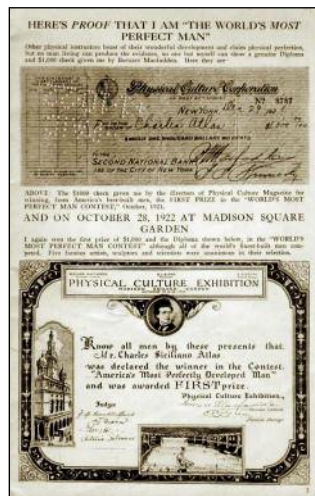 HERE'S PROOF THAT I AM "THE WORLD'S MOST
PERFECT MAN"
Other physical instructors boast of their wonderful development and claim physical perfection,
but no man living can produce the evidence, no one but myself can show a genuine Diploma
and $1,000 check given me by Bernarr Macfadden. Here they are
Physical Culture Corporation
No 8787
NEW YORK, Dec 29
Charles Atlas
SECOND NATIONAL BANK
OF THE CITY OF NEW YORK
ABOVE: The $1000 check given me by the directors of Physical Culture Magazine for
winning, from America's best-built men, the FIRST PRIZE in the "WORLD'S MOST
PERFECT MAN CONTEST," October, 1921.
AND ON OCTOBER 28, 1922 AT MADISON SQUARE
GARDEN
I again won the first prize of $1,000 and the Diploma shown below, in the "WORLD'S
MOST PERFECT MAN CONTEST" although all of the world's finest-built men com-
peted. Five famous artists, sculptors and scientists were unanimous in their selection.
PHYSICAL CULTURE EXHIBITION
MADISON SQUARE GARDEN
Know all men by these presents that
Mr. Charles Siciliano Atlas
was declared the winner in the Contest.
"America's Most Perfectly Developed Man"
and was awarded FIRST prize.
Physical Culture Exhibition,
Judges